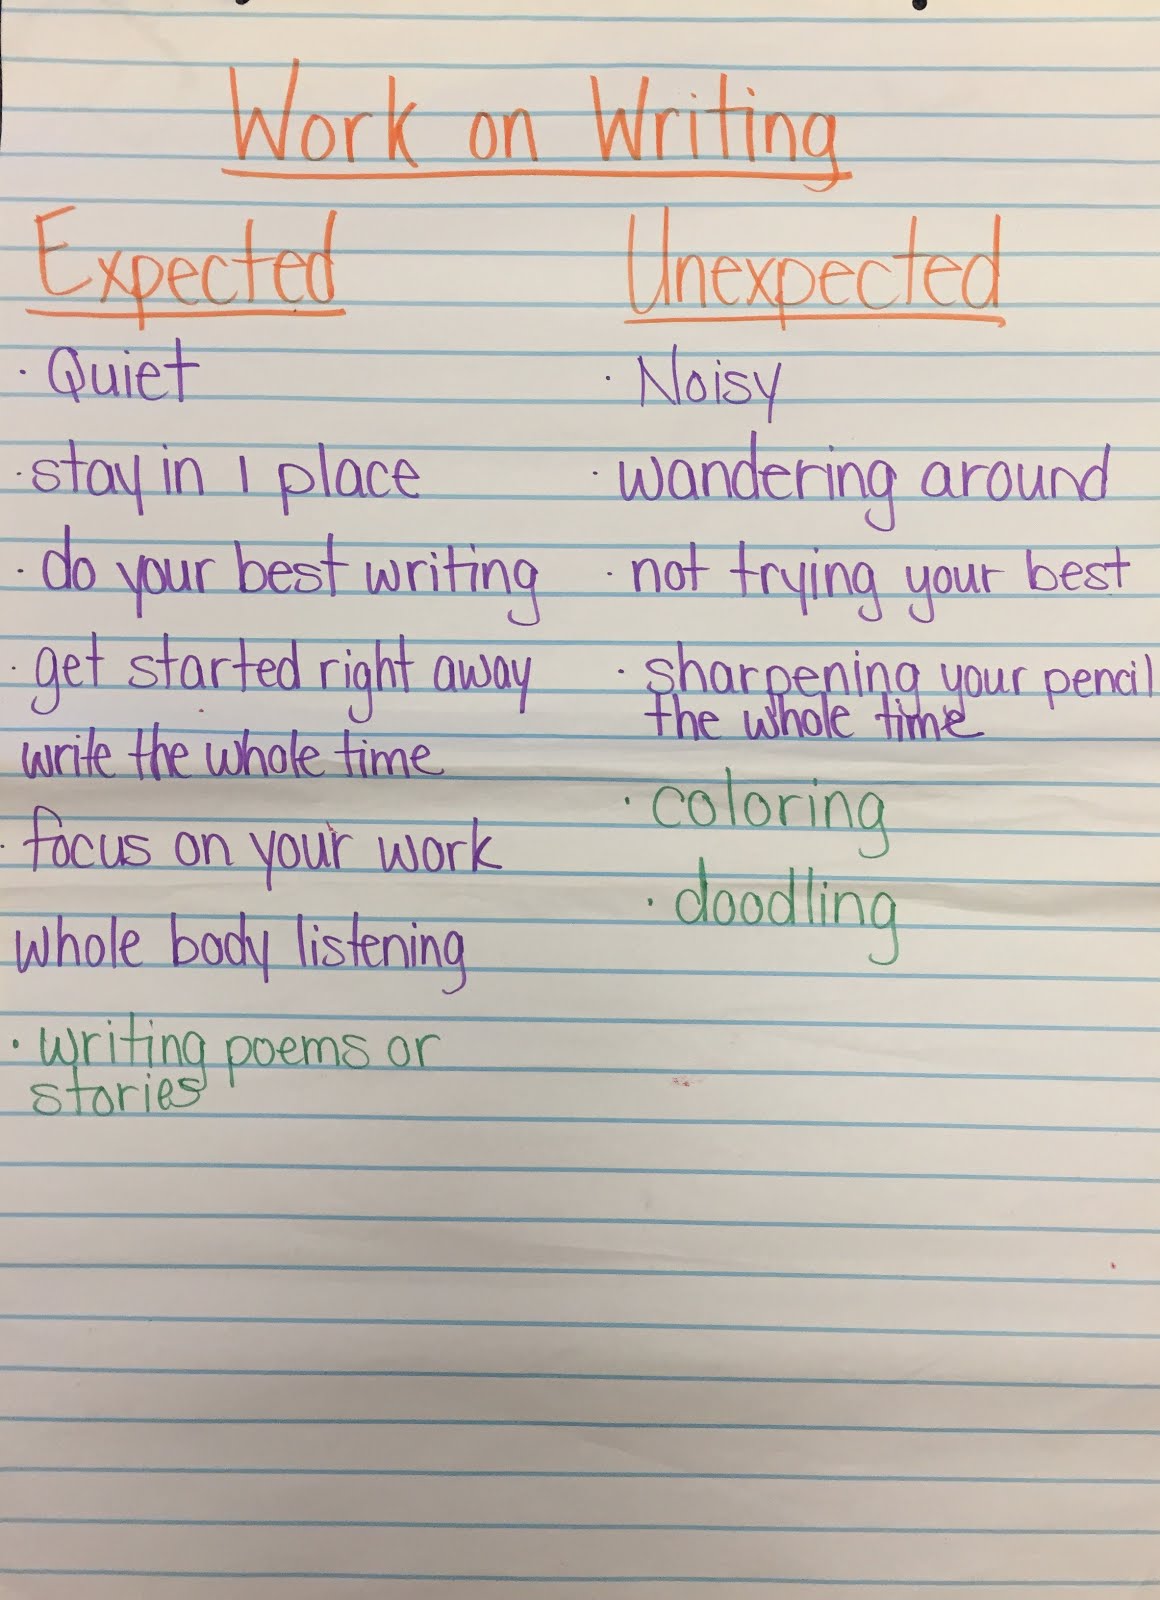 Work on Writing
Expected
· Quiet
· stay in 1 place
· do your best writing
· get started right away
write the whole time
· focus on your work
whole body listening
· writing poems or
stories
Unexpected
· Noisy
· wandering around
· not trying your best
· sharpening your pencil
the whole time
· coloring
· doodling